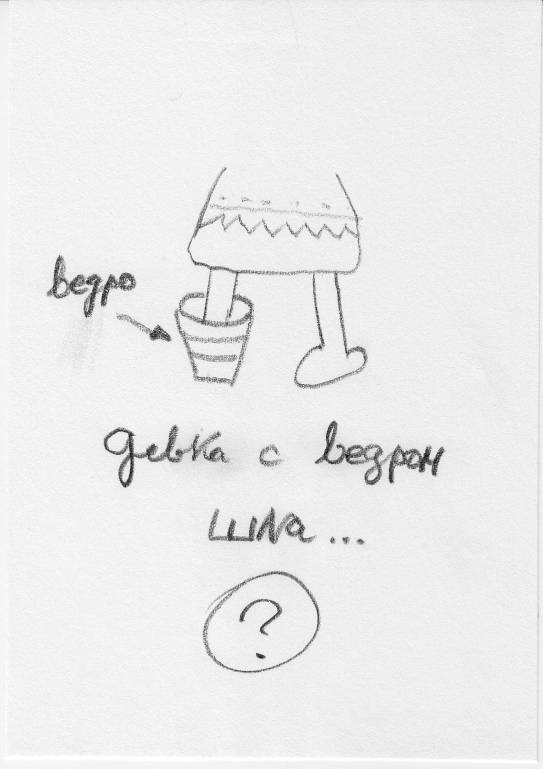 ведро
девка с ведром
шла...
?